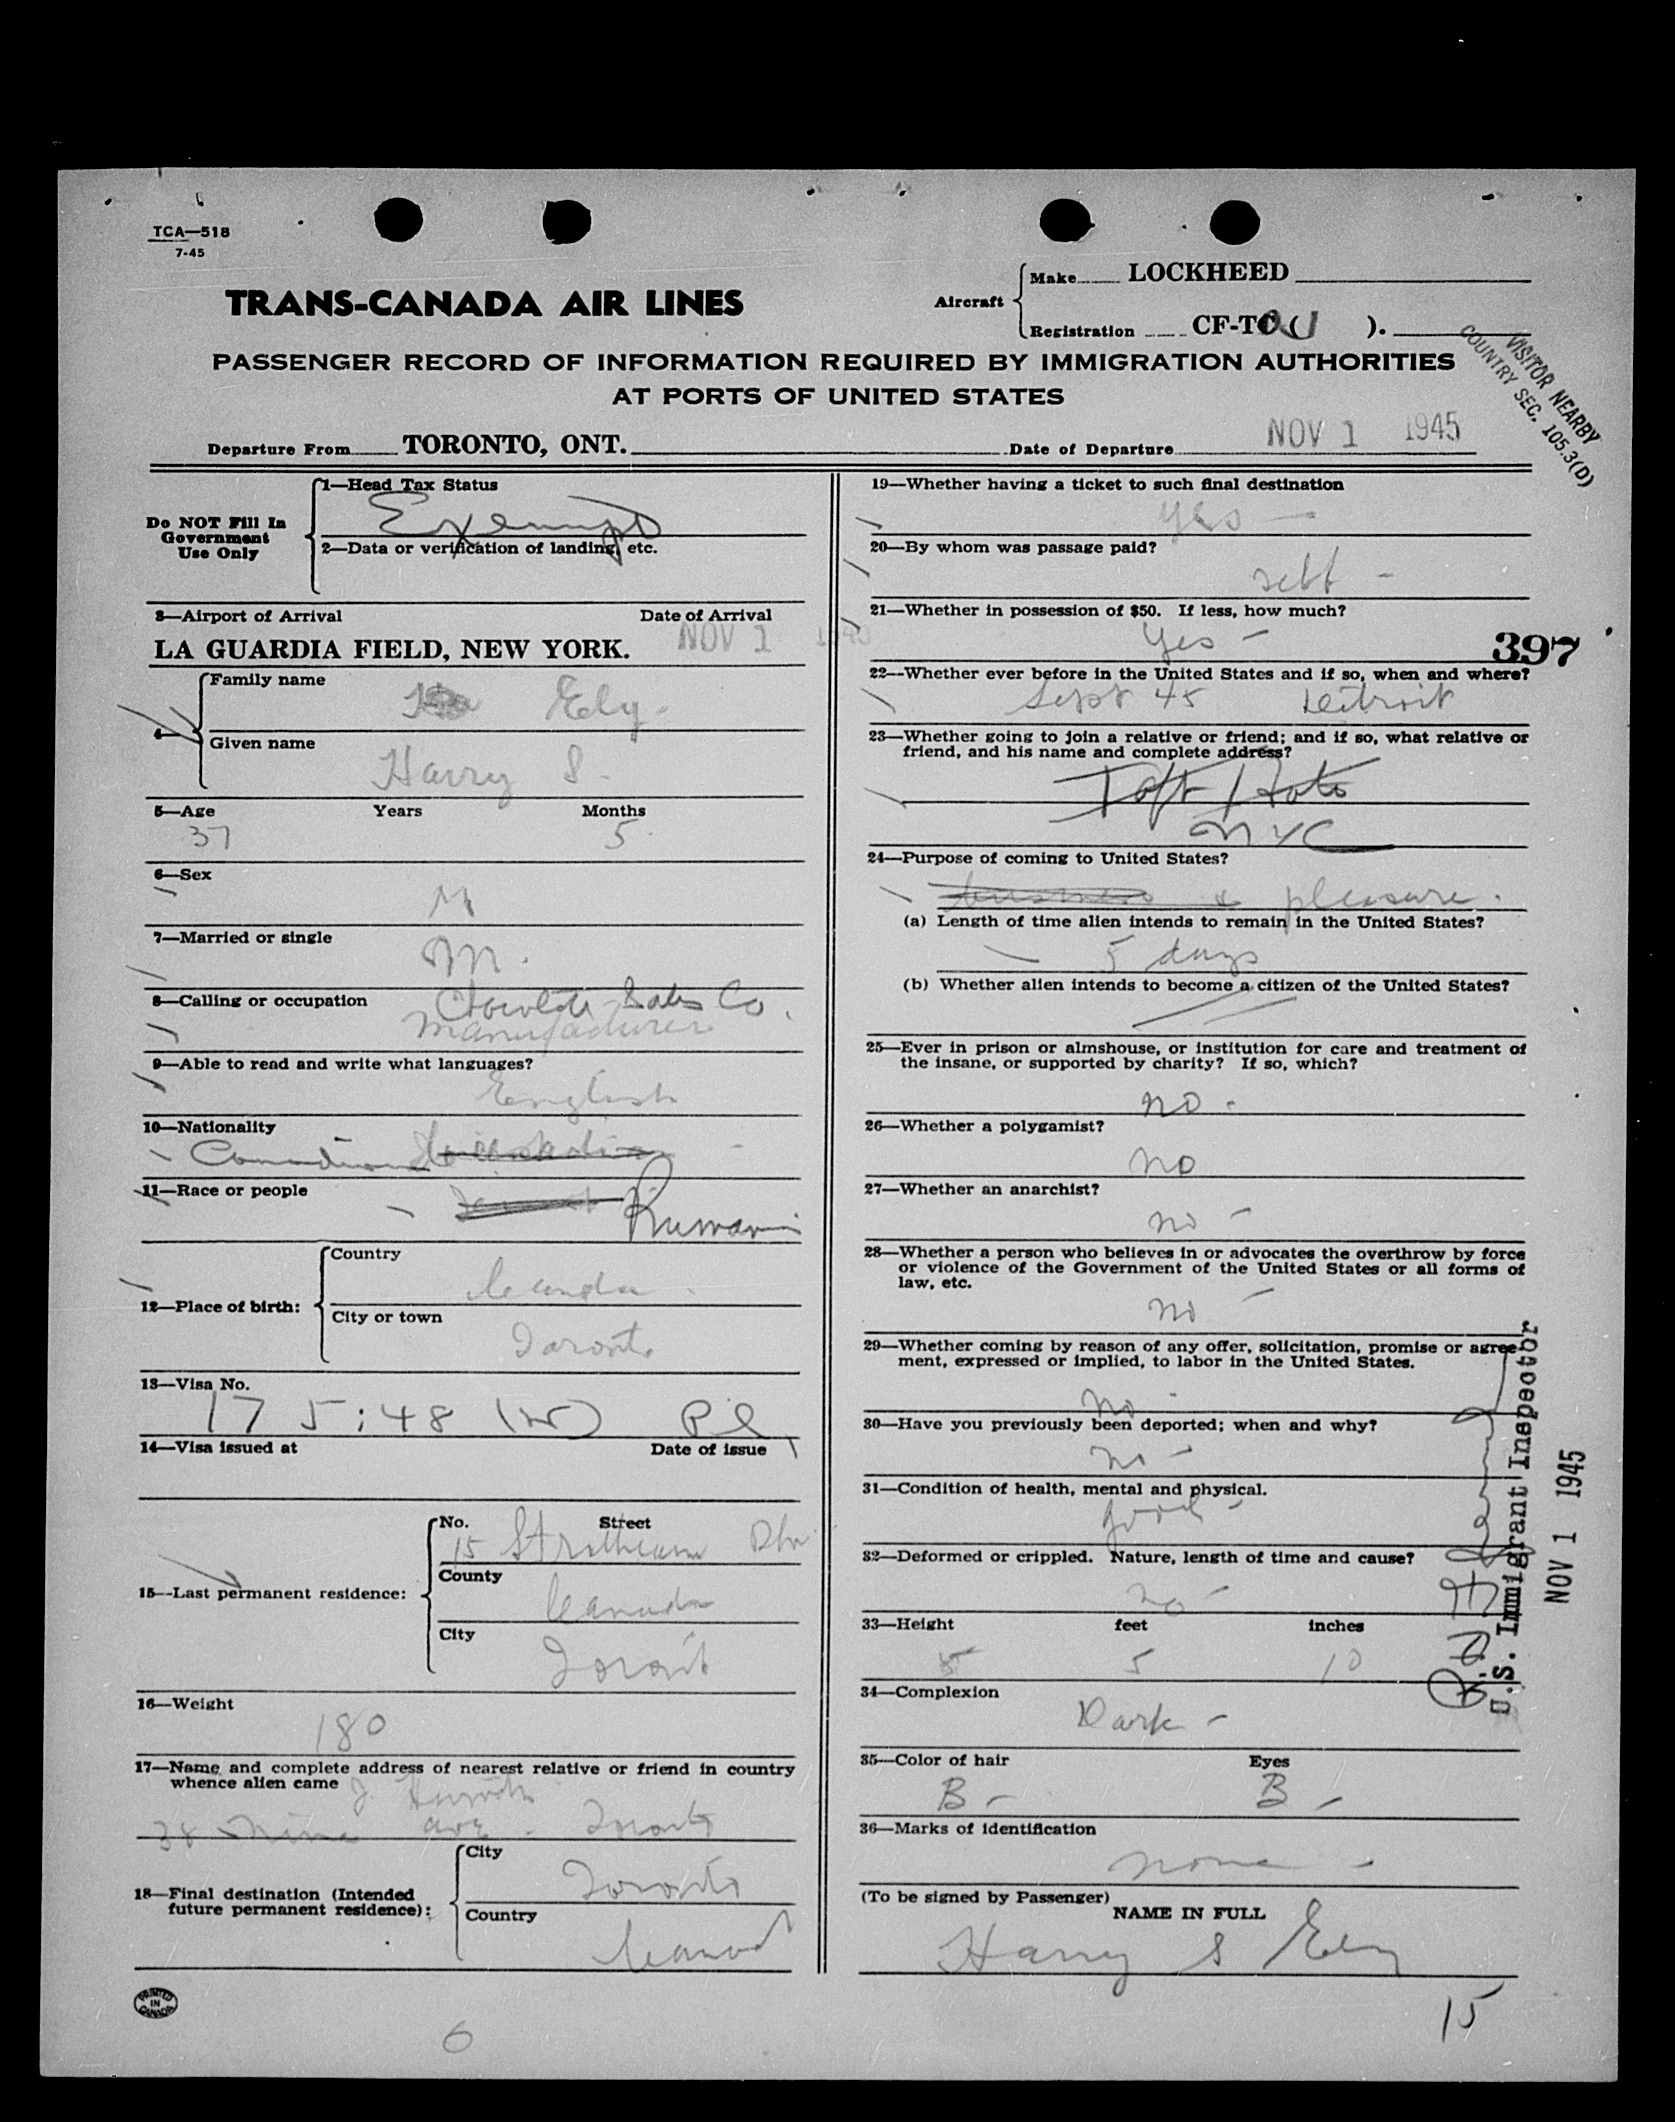 TCA—518
7-45
TRANS-CANADA AIR LINES
Aircraft
Make LOCKHEED
Registration CF-TC ( ).
PASSENGER RECORD OF INFORMATION REQUIRED BY IMMIGRATION AUTHORITIES
AT PORTS OF UNITED STATES
VISITOR NEARBY
COUNTRY SEC. 105.3(D)
Departure From TORONTO, ONT. Date of Departure NOV 1 1945
Do NOT Fill In
Government
Use Only
1—Head Tax Status
Exempt
2—Data or verification of landing, etc.
3—Airport of Arrival Date of Arrival
LA GUARDIA FIELD, NEW YORK. NOV 1
4—
Family name
Ely.
Given name
Harry S.
5—Age Years Months
37 5
6—Sex
M
7—Married or single
M.
8—Calling or occupation
Sales Co.
Manufacturer
9—Able to read and write what languages?
English
10—Nationality
Canadian
11—Race or people
12—Place of birth:
Country
Canada.
City or town
Toronto
13—Visa No.
17 5:48 (W)
14—Visa issued at Date of issue
15—Last permanent residence:
No. Street
15
County
Canada
City
Toronto
16—Weight
180
17—Name and complete address of nearest relative or friend in country
whence alien came J.
38 ave. Toronto
18—Final destination (Intended
future permanent residence):
City
Toronto
Country
Canada
PRINTED
IN
CANADA
6
19—Whether having a ticket to such final destination
Yes —
20—By whom was passage paid?
self -
21—Whether in possession of $50. If less, how much?
Yes -
397
22—Whether ever before in the United States and if so, when and where?
Sept 45 Detroit
23—Whether going to join a relative or friend; and if so, what relative or
friend, and his name and complete address?
Taft Hote
NYC
24—Purpose of coming to United States?
business & pleasure.
(a) Length of time alien intends to remain in the United States?
5 days
(b) Whether alien intends to become a citizen of the United States?
25—Ever in prison or almshouse, or institution for care and treatment of
the insane, or supported by charity? If so, which?
no -
26—Whether a polygamist?
no
27—Whether an anarchist?
no -
28—Whether a person who believes in or advocates the overthrow by force
or violence of the Government of the United States or all forms of
law, etc.
no -
29—Whether coming by reason of any offer, solicitation, promise or agree-
ment, expressed or implied, to labor in the United States.
no -
30—Have you previously been deported; when and why?
no -
31—Condition of health, mental and physical.
good -
32—Deformed or crippled. Nature, length of time and cause?
no -
33—Height feet inches
5 10
34—Complexion
Dark -
35—Color of hair Eyes
B - B -
36—Marks of identification
none -
(To be signed by Passenger)
NAME IN FULL
Harry S Ely
15
U.S. Immigrant Inspector
NOV 1 1945